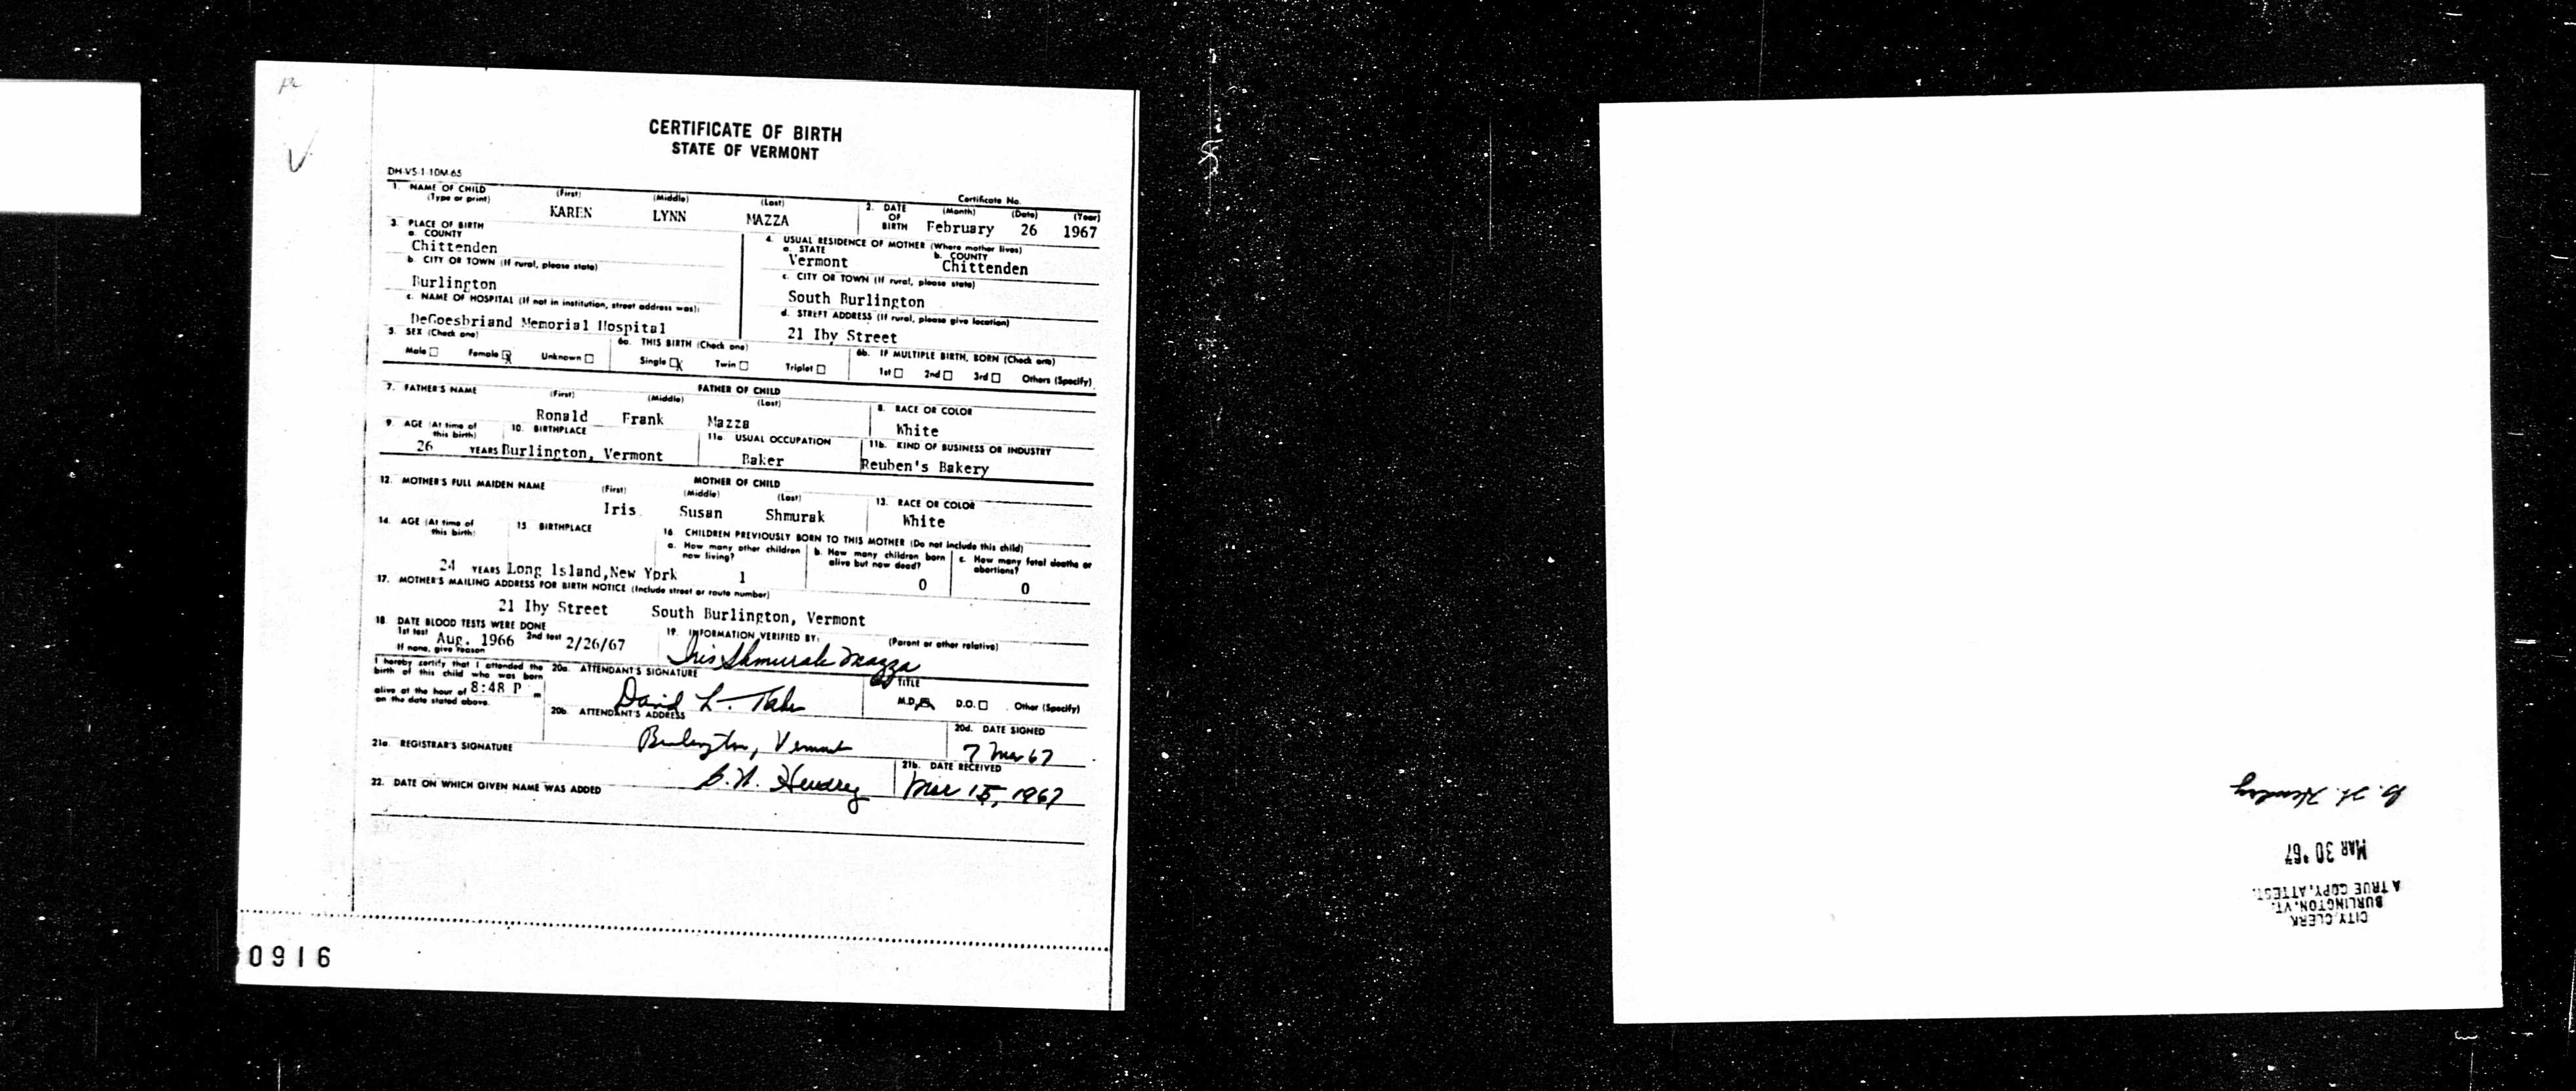 CERTIFICATE OF BIRTH
STATE OF VERMONT
DH-VS-1-10M-65
Certificate No.
1. NAME OF CHILD (Type or print) (First) (Middle) (Last) 2. DATE OF BIRTH (Month) (Date) (Year)
KAREN LYNN MAZZA February 26 1967
3. PLACE OF BIRTH
a. COUNTY
Chittenden
b. CITY OR TOWN (If rural, please state)
Burlington
c. NAME OF HOSPITAL (If not in institution, street address was):
DeGoesbriand Memorial Hospital
4. USUAL RESIDENCE OF MOTHER (Where mother lives)
a. STATE b. COUNTY
Vermont Chittenden
c. CITY OR TOWN (If rural, please state)
South Burlington
d. STREET ADDRESS (If rural, please give location)
21 Iby Street
5. SEX (Check one) 6a. THIS BIRTH (Check one) 6b. IF MULTIPLE BIRTH, BORN (Check one)
Male Female X Unknown Single X Twin Triplet 1st 2nd 3rd Others (Specify)
FATHER OF CHILD
7. FATHER'S NAME (First) (Middle) (Last) 8. RACE OR COLOR
Ronald Frank Mazza White
9. AGE (At time of this birth) 10. BIRTHPLACE 11a. USUAL OCCUPATION 11b. KIND OF BUSINESS OR INDUSTRY
26 YEARS Burlington, Vermont Baker Reuben's Bakery
MOTHER OF CHILD
12. MOTHER'S FULL MAIDEN NAME (First) (Middle) (Last) 13. RACE OR COLOR
Iris Susan Shmurak White
14. AGE (At time of this birth) 15. BIRTHPLACE 16. CHILDREN PREVIOUSLY BORN TO THIS MOTHER (Do not include this child)
a. How many other children now living? b. How many children born alive but now dead? c. How many fetal deaths or abortions?
24 YEARS Long Island,New York 1 0 0
17. MOTHER'S MAILING ADDRESS FOR BIRTH NOTICE (Include street or route number)
21 Iby Street South Burlington, Vermont
18. DATE BLOOD TESTS WERE DONE 19. INFORMATION VERIFIED BY: (Parent or other relative)
1st test Aug. 1966 2nd test 2/26/67 Iris Shmurak Mazza
If none, give reason
I hereby certify that I attended the birth of this child who was born alive at the hour of 8:48 P m on the date stated above.
20a. ATTENDANT'S SIGNATURE TITLE
David L. M.D. X D.O. Other (Specify)
20b. ATTENDANT'S ADDRESS 20d. DATE SIGNED
Burlington, Vermont 7 Mar 67
21a. REGISTRAR'S SIGNATURE 21b. DATE RECEIVED
Mar 15, 1967
22. DATE ON WHICH GIVEN NAME WAS ADDED
00916
CITY CLERK
BURLINGTON, VT.
A TRUE COPY, ATTEST.
MAR 30 '67